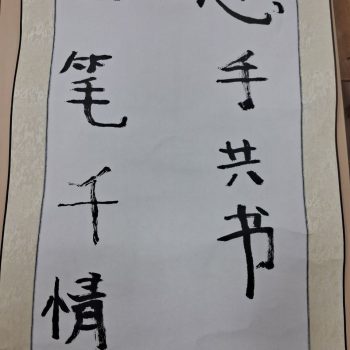 手共书
笔千情